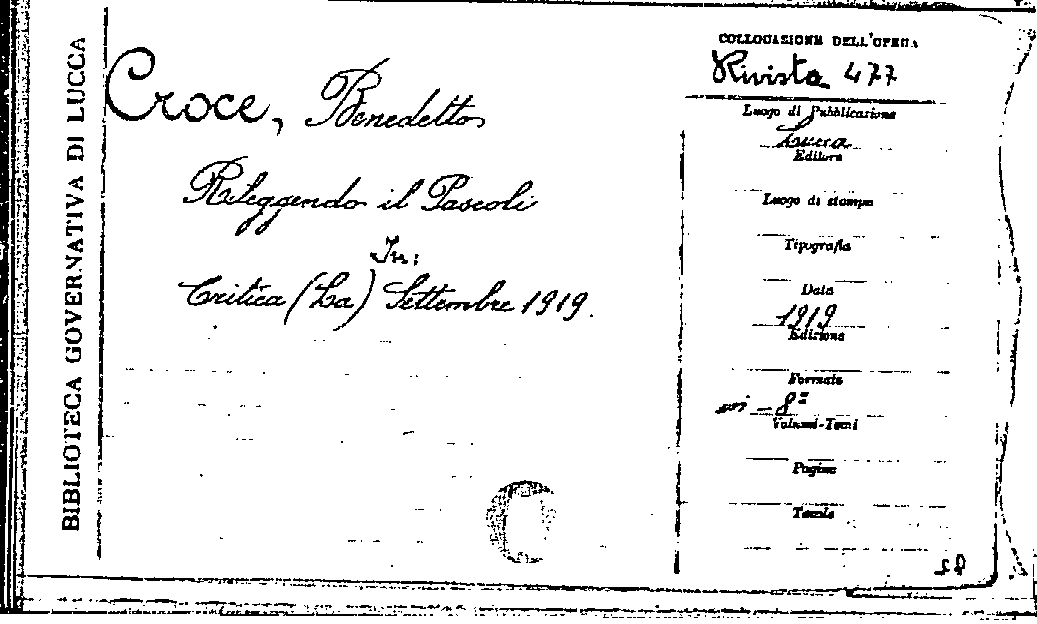 BIBLIOTECA GOVERNATIVA DI LUCCA
Croce, Benedetto
Rileggendo il Pascoli
In:
Critica (La) Settembre 1919.
C
COLLOCAZIONE DELL'OPERA
Rivista 477
Luogo di Pubblicazione
Lucca
Editore
Luogo di stampa
Tipografia
Data
1919
Edizione
Formato
in-8º
Volumi-Tomi
Pagine
Tavole